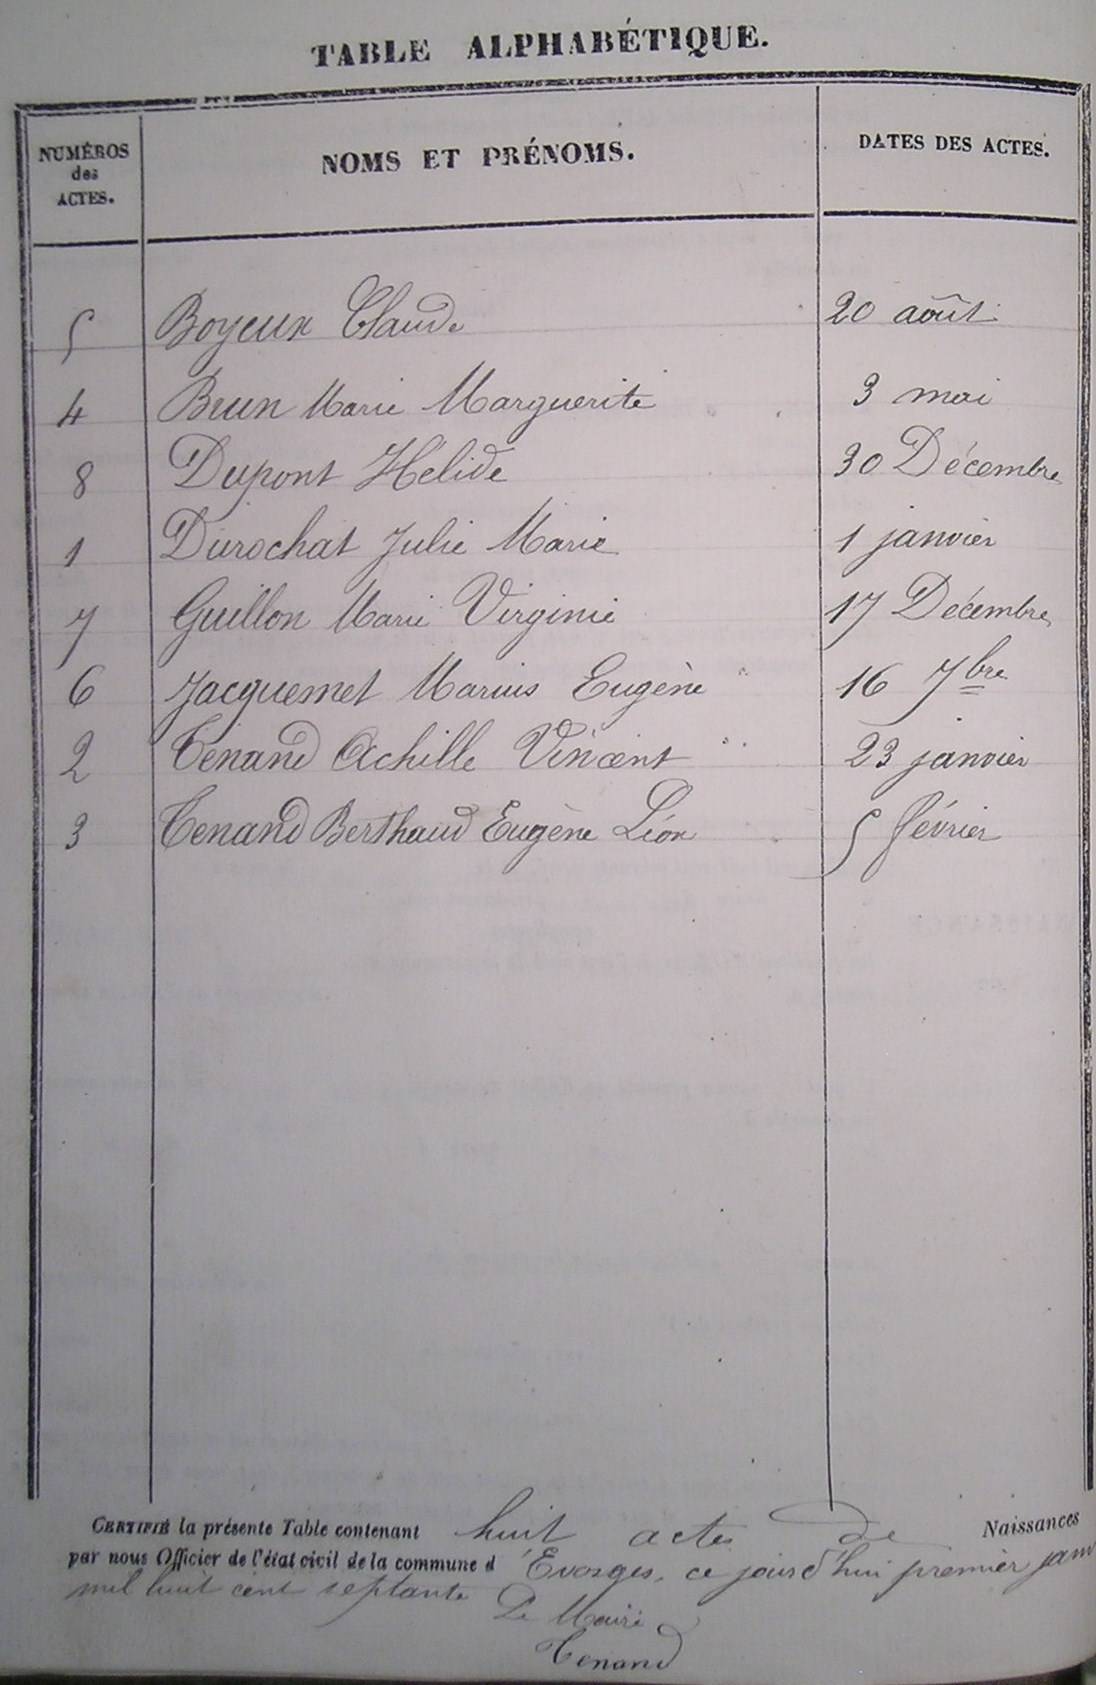 TABLE ALPHABÉTIQUE.
NUMÉROS des ACTES. NOMS ET PRÉNOMS. DATES DES ACTES.
5 Boyeux Claude 20 août
4 Brun Marie Marguerite 3 mai
8 Dupont Hélide 30 Décembre
1 Durochat Julie Marie 1 janvier
7 Guillon Marie Virginie 17 Décembre
6 Jacquemet Marius Eugène 16 7bre
2 Tenand Achille Vincent 23 janvier
3 Tenand Berthaud Eugène Léon 5 février
CERTIFIÉ la présente Table contenant huit actes de Naissances
par nous Officier de l'état civil de la commune d'Evosges, ce jourd'hui premier janv
mil huit cent septante
Le Maire
Tenand